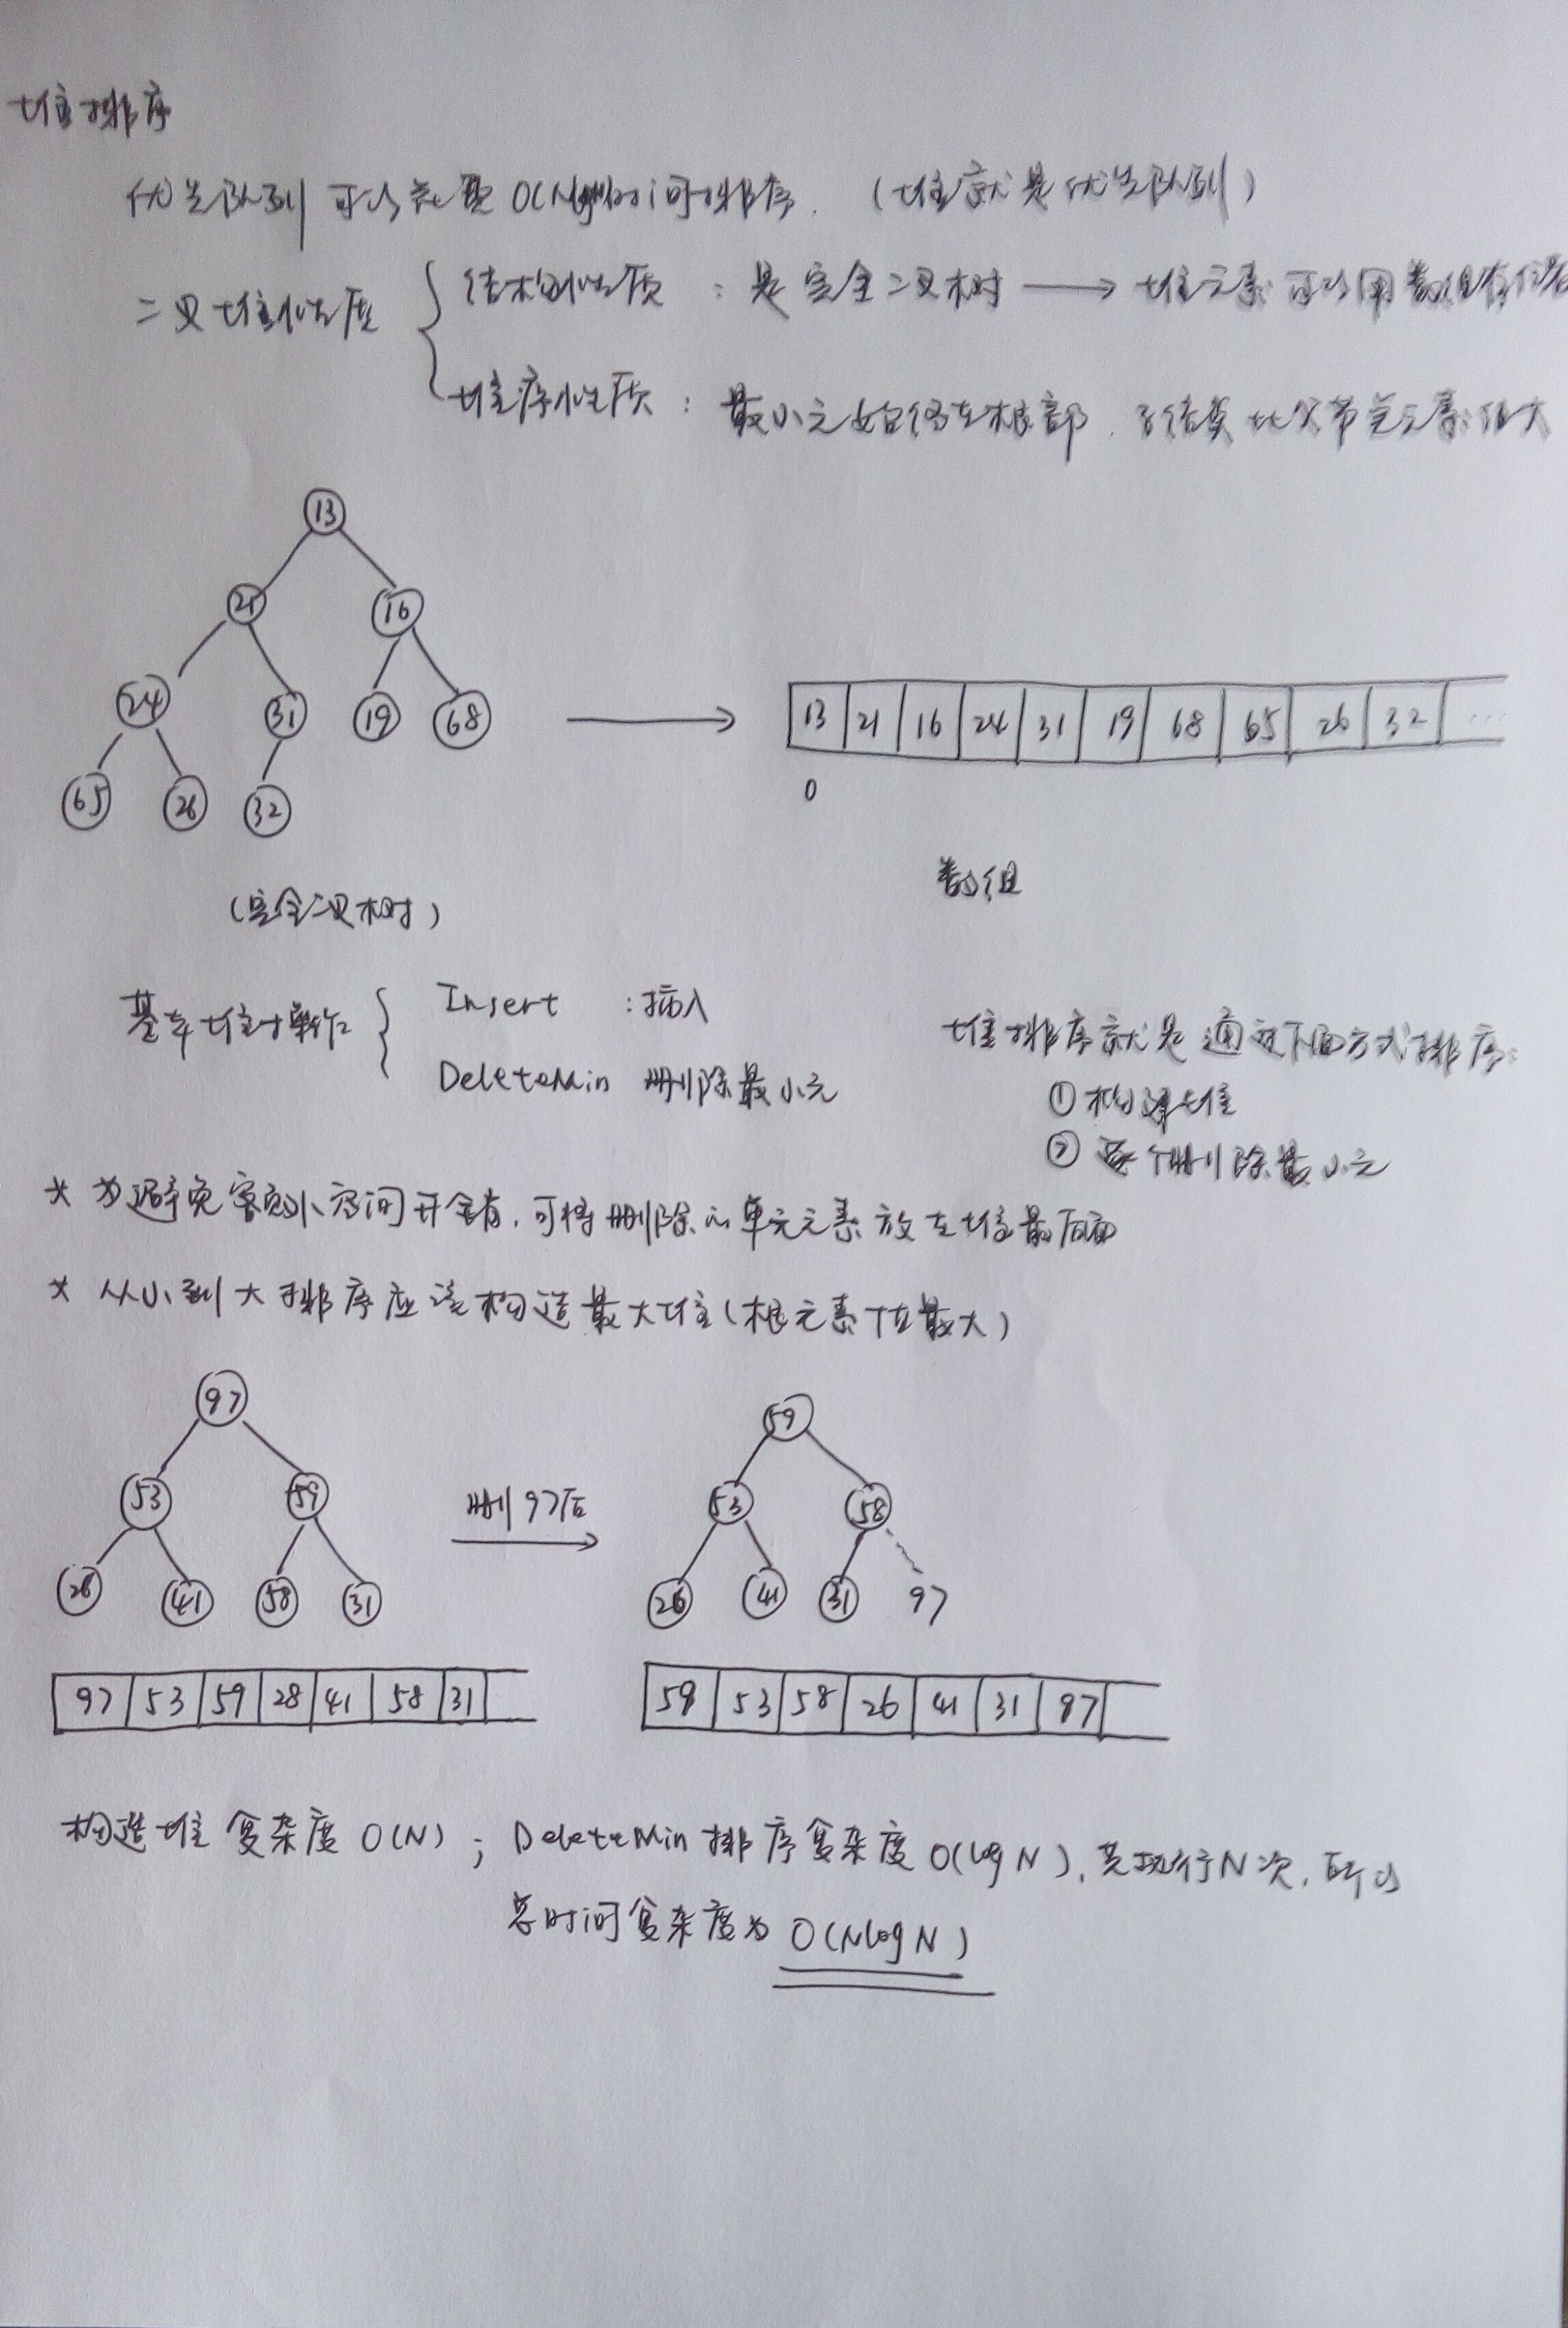 堆排序
优先队列可以花费O(NlogN)时间排序.（堆就是优先队列）
二叉堆性质
结构性质：是完全二叉树 → 堆元素可以用数组存储
堆序性质：最小元始终在根部.子结点比父节点元素值大
13
21 16
24 31 19 68
65 26 32
13 21 16 24 31 19 68 65 26 32 ...
0
数组
(完全二叉树)
基本堆操作
Insert ：插入
DeleteMin 删除最小元
堆排序就是通过下面方式排序：
① 构建堆
② 逐个删除最小元
* 为避免空间开销,可将删除的单元元素放在堆最后面
* 从小到大排序应该构造最大堆(根元素值最大)
97
53 59
26 41 58 31
删97后
59
53 58
26 41 31 97
97 53 59 28 41 58 31
59 53 58 26 41 31 97
构造堆复杂度O(N)；DeleteMin排序复杂度O(log N),共执行N次,所以
总时间复杂度为O(NlogN)